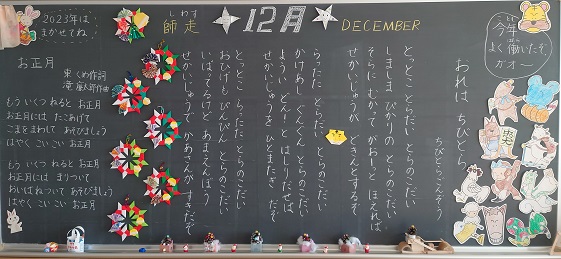 2023年は
まかせてね!
師走
しわす
12月
DECEMBER
今年も
ことし
よく働いたぞ
ガオー
おれは ちびとら
ちびとらこえぞう
とっとこ とらたた とらのこだい
しましま ぴかりの とらのこだい
そらに むかって がおーと ほえれば
せかいじゅうが どきんとするぞ
らったた とらたた とらのこだい
かけあし ぐんぐん とらのこだい
ようい どん!と はしりだせば
せかいじゅうを ひとまたぎ だぞ
とっとこ とらたた とらのこだい
おひげも ぴんぴん とらのこだい
いばってるけど あまえんぼう
せかいじゅうで かあさんが すきだぞ
お正月
東 くめ作詞
滝 廉太郎作曲
もう いくつ ねると お正月
お正月には たこあげて
こまを まわして あそびましょう
はやく こい こい お正月
もう いくつ ねると お正月
お正月には まりついて
おいばねついて あそびましょう
はやく こい こい お正月